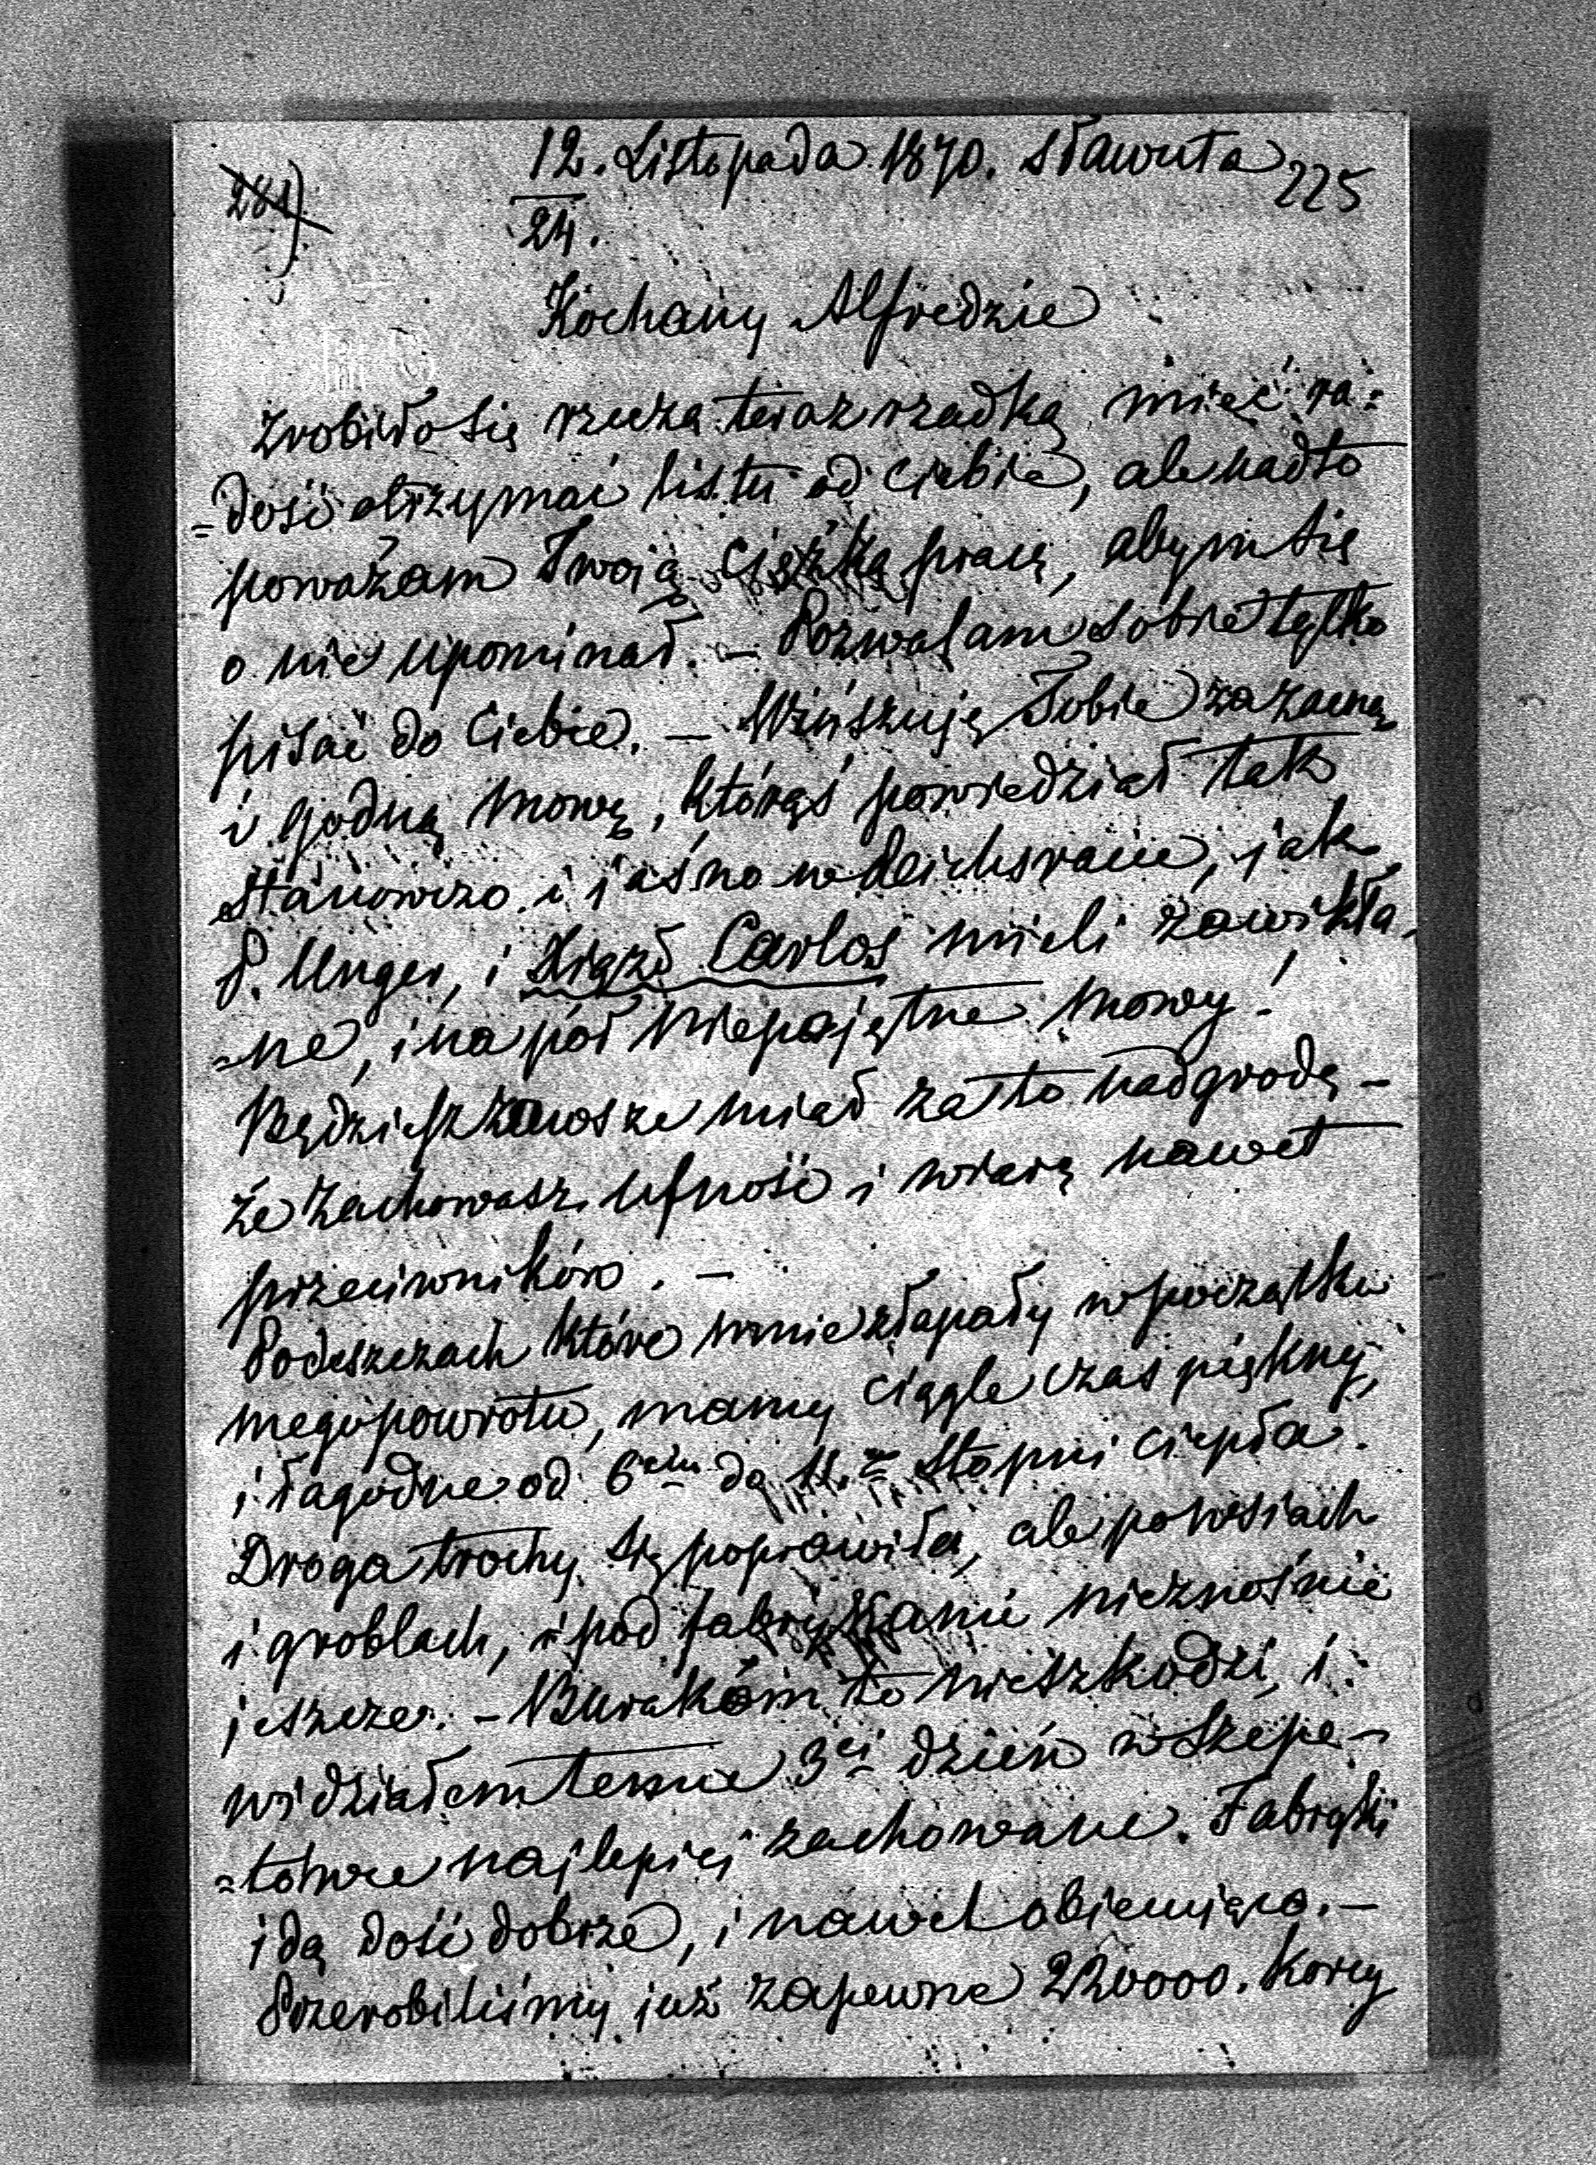 12. Listopada 1870. Sławuta 225
281)
24.
Kochany Alfredzie
Zrobiło się rzeczą teraz rzadką mieć ra=
=dość otrzymać listu od Ciebie, ale nadto
poważam Twoią ciężką pracę, abym się
o nie upominał. – Pozwalam sobie tylko
pisać do Ciebie. – Winszuję Tobie za zacną
i godną mowę, którąś powiedział tak
stanowczo i jasno w Reichsracie, jak
P. Unger, i Xiąże Carlos mieli zawikła-
=ne, i na pół niepojętne mowy!
Będziesz zawsze miał za to nadgrodę –
że zachowasz ufność i wiarę nawet
przeciwników. –
Po deszczach które mnie złapały w początku
mego powrotu, mamy ciągle czas piękny,
i łagodne od 6ciu do 11.tu stopni ciepła.
Droga trochy się poprawiła, ale po wsiach
i groblach, i pod fabrykami nieznośnie
jeszcze. – Burakom to nieszkodzi, i
widziałem temu 3ci dzień w Szepe-
=towce najlepiej zachowane. Fabryki
idą dość dobrze, i nawet obiecująco. –
Przerobiliśmy już zapewne 220000. korcy